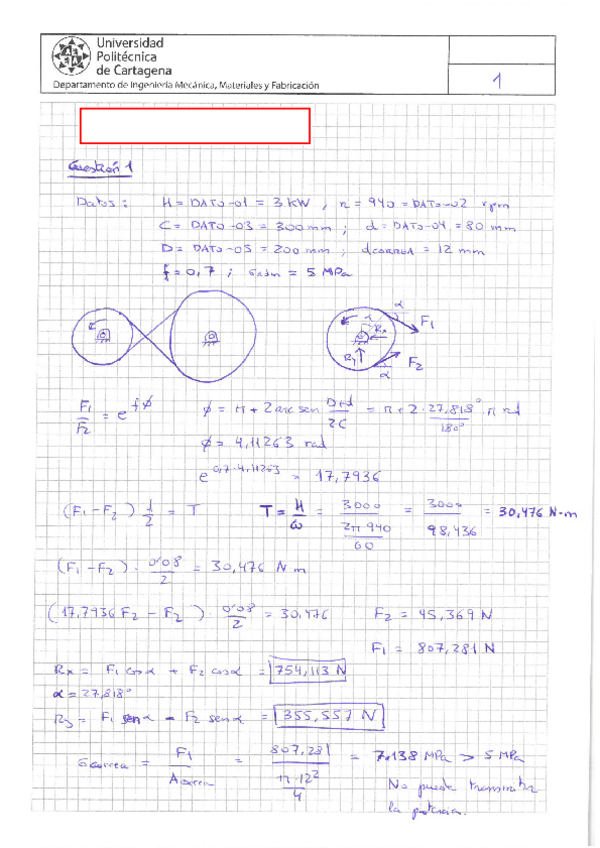 Universidad
Politécnica
de Cartagena
Departamento de Ingeniería Mecánica, Materiales y Fabricación
1
Cuestión 1
Datos: H = DATO-01 = 3 KW, n = 940 = DATO-02 rpm
C = DATO-03 = 300 mm; d = DATO-04 = 80 mm
D = DATO-05 = 200 mm; dCORREA = 12 mm
f = 0,7; σadm = 5 MPa
α F1
α Rx
Ry F2
α
F1/F2 = e^fϕ ϕ = π + 2 arc sen (D+d)/2C = π + 2 · 27,818° · π/180° rd
ϕ = 4,11263 rad
e^0,7·4,11263 = 17,7936
(F1 - F2) 1/2 = T T = H/ω = 3000/(2π 940/60) = 3000/98,436 = 30,476 N·m
(F1 - F2) · 0'08/2 = 30,476 N m
(17,7936 F2 - F2) · 0'08/2 = 30,476 F2 = 45,369 N
F1 = 807,281 N
Rx = F1 cosα + F2 cosα = 754,113 N
α = 27,818°
Ry = F1 senα - F2 senα = 355,557 N
σcorrea = F1/Acorrea = 807,281/(π·12²/4) = 7,138 MPa > 5 MPa
No puede transmitir
la potencia.